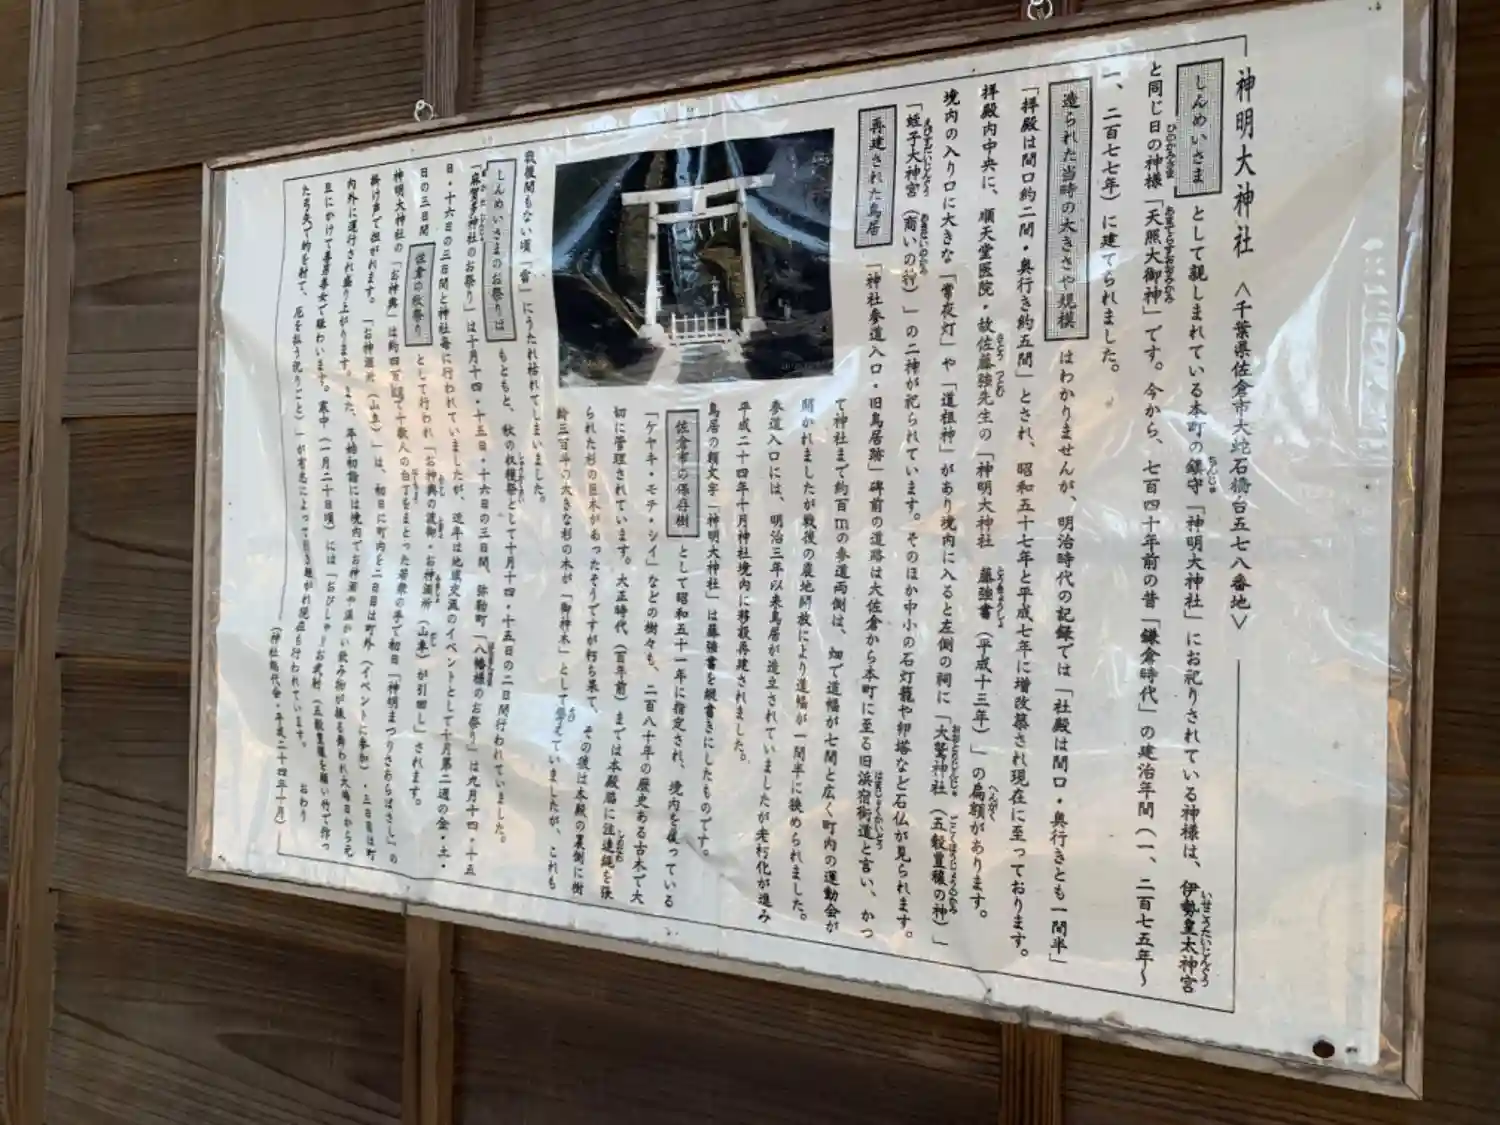 神明大神社 <千葉県佐倉市大蛇石橋台五七八番地>
しんめいさま として親しまれている本町の鎮守「神明大神社」にお祀りされている神様は、伊勢皇太神宮
と同じ日の神様「天照大御神」です。今から、七百四十年前の昔「鎌倉時代」の建治年間(一、二百七五年~
一、二百七七年)に建てられました。
造られた当時の大きさや規模 はわかりませんが、明治時代の記録では「社殿は間口・奥行きとも一間半」
「拝殿は間口約二間・奥行き約五間」とされ、昭和五十七年と平成七年に増改築され現在に至っております。
拝殿内中央に、順天堂医院・故佐藤強先生の「神明大神社 藤強書(平成十三年)」の扁額があります。
境内の入り口に大きな「常夜灯」や「道祖神」があり境内に入ると左側の祠に「大鷲神社(五穀豊穣の神)」
「蛭子大神宮(商いの神)」の二神が祀られています。そのほか中小の石灯籠や卵塔など石仏が見られます。
再建された鳥居 「神社参道入口・旧鳥居跡」碑前の道路は大佐倉から本町に至る旧浜宿街道と言い、かつ
て神社まで約百mの参道両側は、畑で道幅が七間と広く町内の運動会が
開かれましたが戦後の農地開放により道幅が一間半に狭められました。
参道入口には、明治三年以来鳥居が造立されていましたが老朽化が進み
平成二十四年十月神社境内に移設再建されました。
鳥居の額文字「神明大神社」は藤強書を縦書きにしたものです。
佐倉市の保存樹 として昭和五十一年に指定され、境内を覆っている
「ケヤキ・モチ・シイ」などの樹々も、二百八十年の歴史ある古木で大
切に管理されています。大正時代(百年前)までは本殿脇に注連縄を張
られた杉の巨木があったそうですが朽ち果て、その後は本殿の裏側に樹
齢三百年の大きな杉の木が「御神木」として聳えていましたが、これも
戦後間もない頃「雷」にうたれ枯れてしまいました。
しんめいさまのお祭りは もともと、秋の収穫祭として十月十四・十五日の二日間行われていました。
「麻賀多神社のお祭り」は十月十四・十五日・十六日の三日間、弥勒町「八幡様のお祭り」は九月十四・十五
日・十六日の三日間と神社毎に行われていましたが、近年は地域交流のイベントとして十月第二週の金・土・
日の三日間 佐倉の秋祭り として行われ「お神輿の渡御・お神酒所(山車)が引廻し」されます。
神明大神社の「お神輿」は約四百 で十数人の白丁をまとった若衆の手で初日「神明まつりさあらばさし」の
掛け声で担がれます。「お神酒所(山車)」は、初日に町内を二日目は町外(イベントに参加)・三日目は町
内外に運行され盛り上がります。また、年始初詣には境内でお神酒や温かい飲み物が振る舞われ大晦日から元
旦にかけて善男善女で賑わいます。寒中(一月二十日頃)には「おびしゃ」お歩射(五穀豊穣を願い竹で作っ
た弓矢で的を射て、厄を払う祝いごと)」が有志によって引き継がれ現在も行われています。 おわり
(神社総代会・平成二十四年十月)